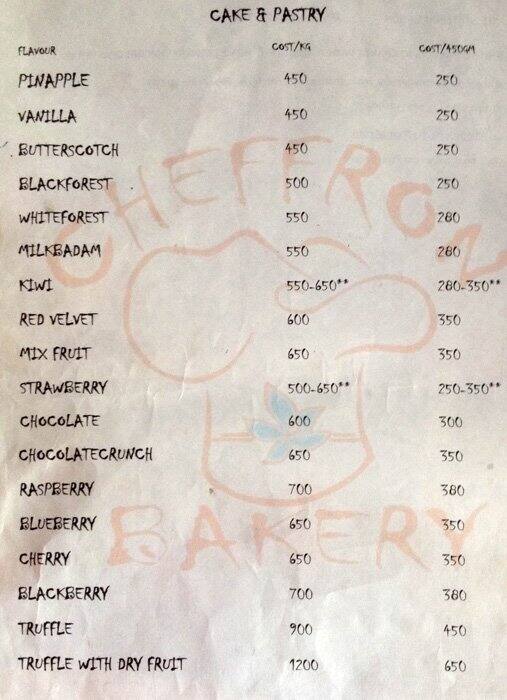 CAKE & PASTRY
FLAVOUR COST/KG COST/450GM
PINAPPLE 450 250
VANILLA 450 250
BUTTERSCOTCH 450 250
BLACKFOREST 500 250
WHITEFOREST 550 280
MILKBADAM 550 280
KIWI 550-650** 280-350**
RED VELVET 600 350
MIX FRUIT 650 350
STRAWBERRY 500-650** 250-350**
CHOCOLATE 600 300
CHOCOLATECRUNCH 650 350
RASPBERRY 700 380
BLUEBERRY 650 350
CHERRY 650 350
BLACKBERRY 700 380
TRUFFLE 900 450
TRUFFLE WITH DRY FRUIT 1200 650
CHEFFRON
BAKERY